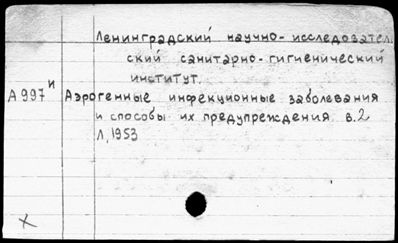 Ленинградский научно-исследовател.
ский санитарно-гигиенический
институт.
и
А997 Аэрогенные инфекционные заболевания
и способы их предупреждения в.2
Л, 1953
X